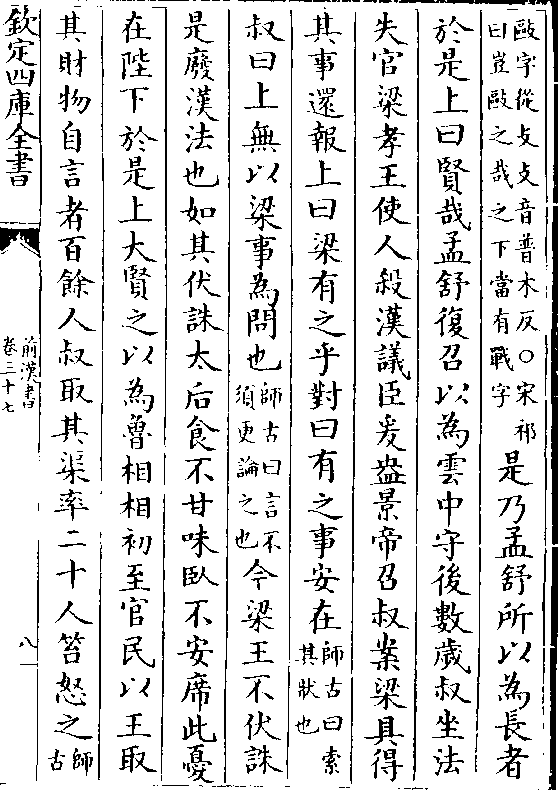 敺字從攴攴音普木反○宋祁
曰豈敺之哉之下當有戰字
是乃孟舒所以為長者
於是上曰賢哉孟舒復召以為雲中守後數歲叔坐法
失官梁孝王使人殺漢議臣爰盎景帝召叔案梁具得
其事還報上曰梁有之乎對曰有之事安在
師古曰索
其狀也
叔曰上無以梁事為問也
師古曰言不
須更論之也
今梁王不伏誅
是廢漢法也如其伏誅太后食不甘味臥不安席此憂
在陛下於是上大賢之以為魯相相初至官民以王取
其財物自言者百餘人叔取其渠率二十人笞怒之
師
古
欽定四庫全書
前漢書
卷三十七
八